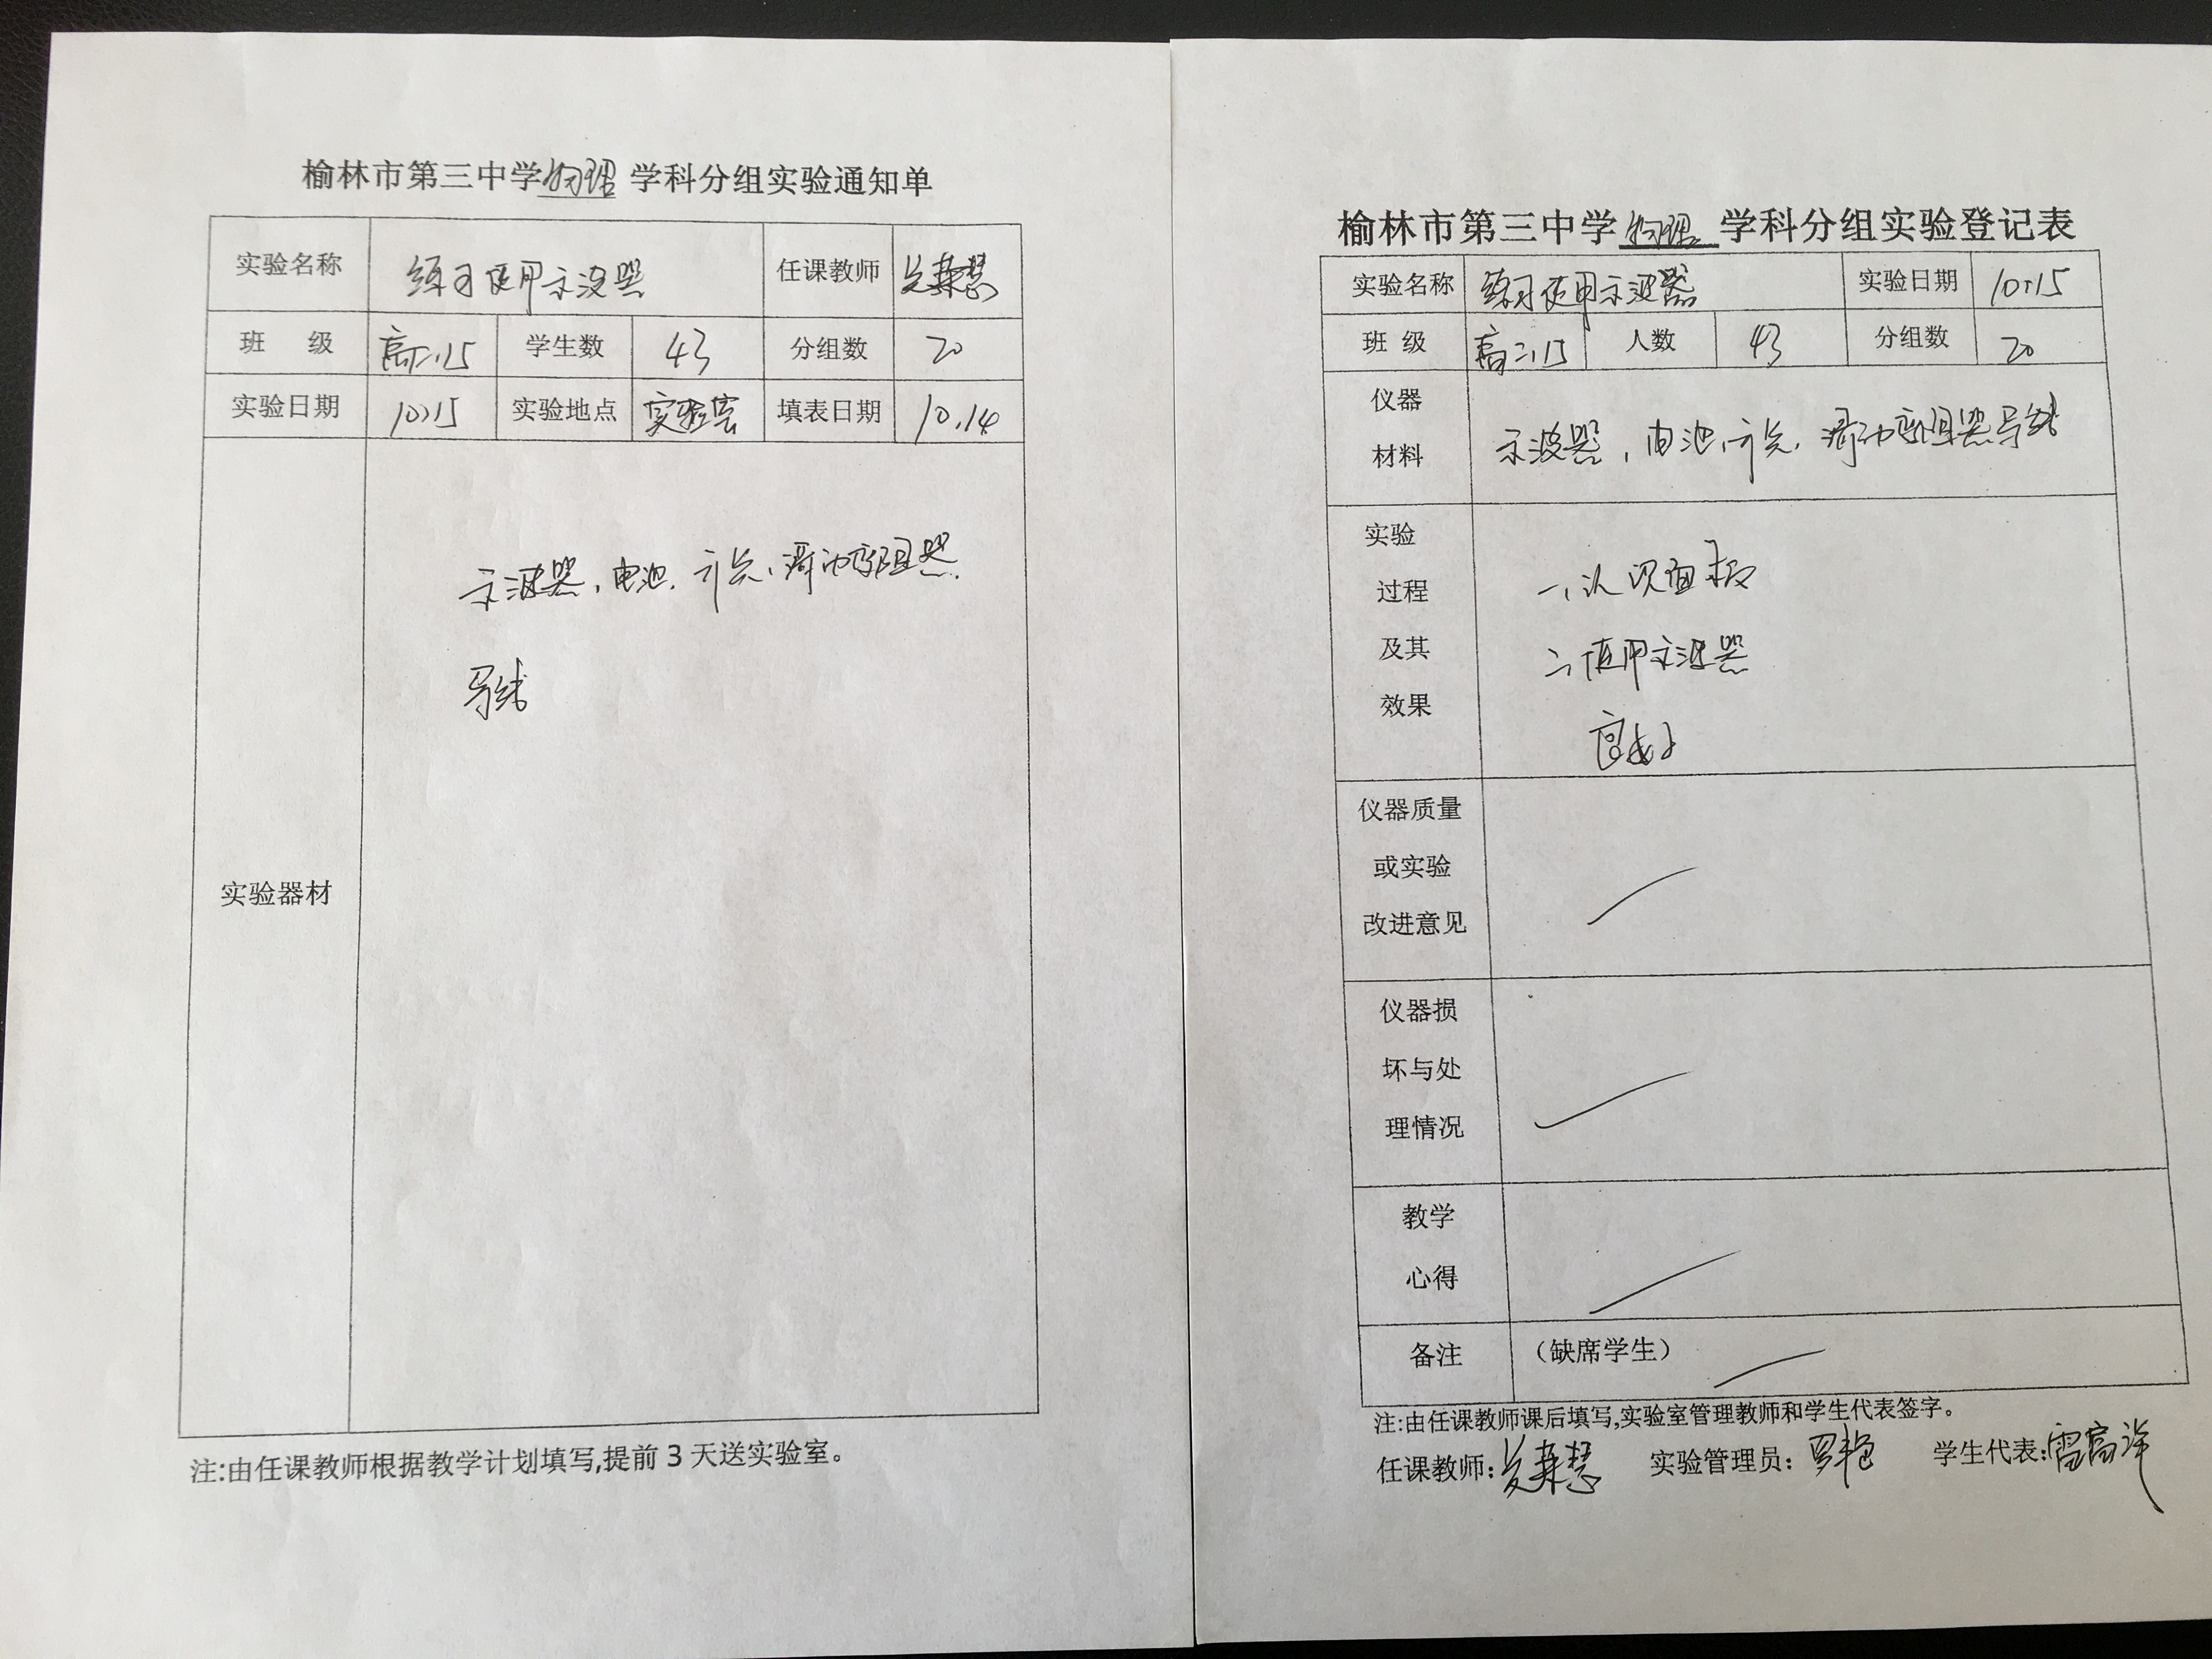 榆林市第三中学物理学科分组实验通知单
实验名称 练习使用示波器 任课教师
班 级 高二.15 学生数 43 分组数 20
实验日期 10.15 实验地点 实验室 填表日期 10.14
实验器材
示波器、电池、开关、滑动变阻器
导线
注:由任课教师根据教学计划填写,提前3天送实验室。
榆林市第三中学物理学科分组实验登记表
实验名称 练习使用示波器 实验日期 10.15
班 级 高二.15 人数 43 分组数 20
仪器
材料
示波器、电池、开关、滑动变阻器导线
实验
过程
及其
效果
一、认识面板
二、使用示波器
仪器质量
或实验
改进意见
仪器损
坏与处
理情况
教学
心得
备注 (缺席学生)
注:由任课教师课后填写,实验室管理教师和学生代表签字。
任课教师: 实验管理员: 罗艳 学生代表: